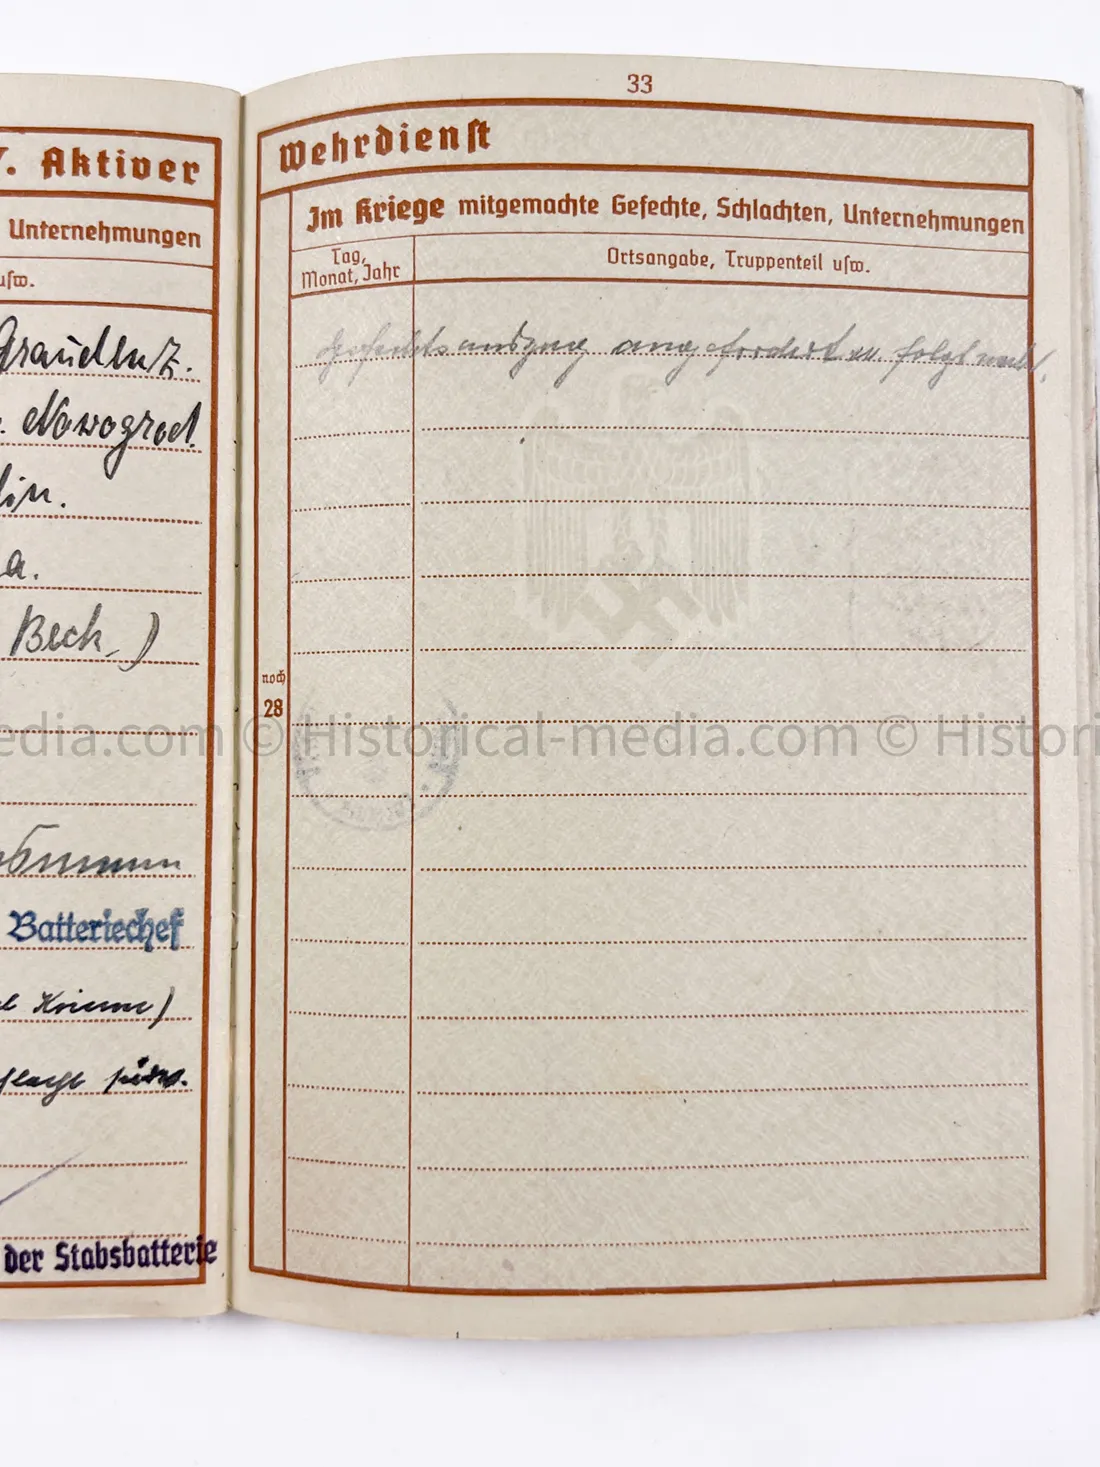 V. Aktiver
Unternehmungen
usw.
Graudenz.
Nowogrod.
lin.
a.
Beck.)
Batteriechef
der Stabsbatterie
33
Wehrdienst
Im Kriege mitgemachte Gefechte, Schlachten, Unternehmungen
Tag,
Monat, Jahr
Ortsangabe, Truppenteil usw.
Gefechtsauszug angefordert u. folgt nach.
noch
28
edia.com © Historical-media.com © Histori